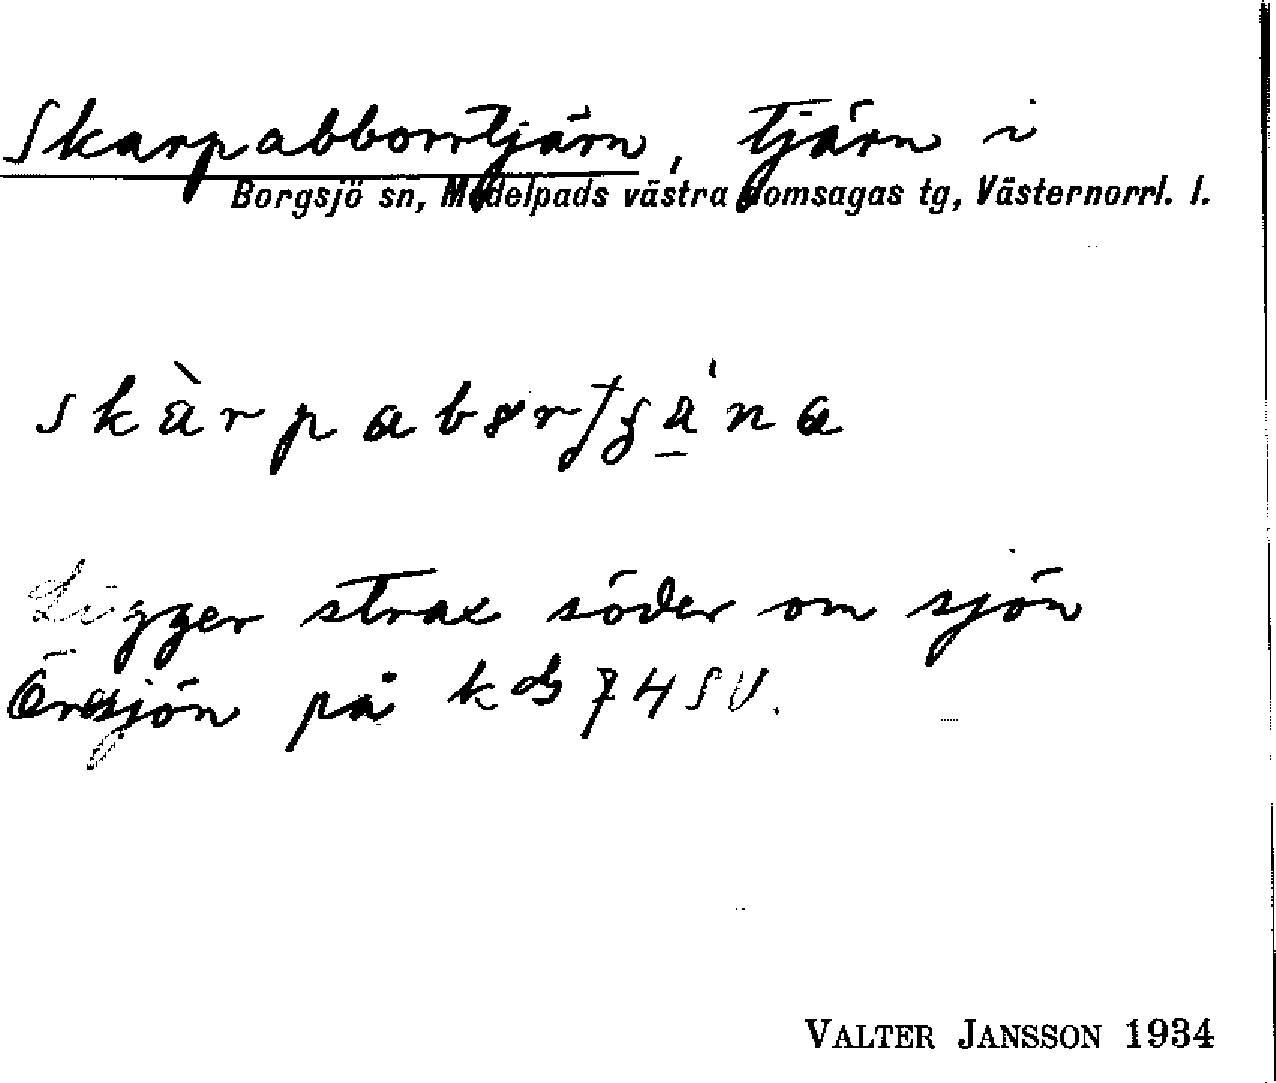 Skarpabborrtjärn, tjärn i
Borgsjö sn, Medelpads västra domsagas tg, Västernorrl. l.
Ligger strax söder om sjön
Öresjön på kbl 74 SV.
VALTER JANSSON 1934